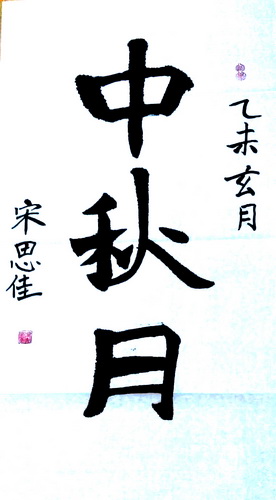 乙未玄月
中秋月
宋思佳